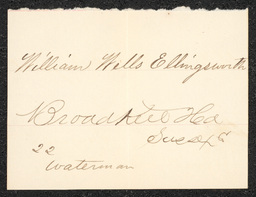 William Wells Ellingsworth
Broadkiln Hd
Sussex Co
22
Waterman